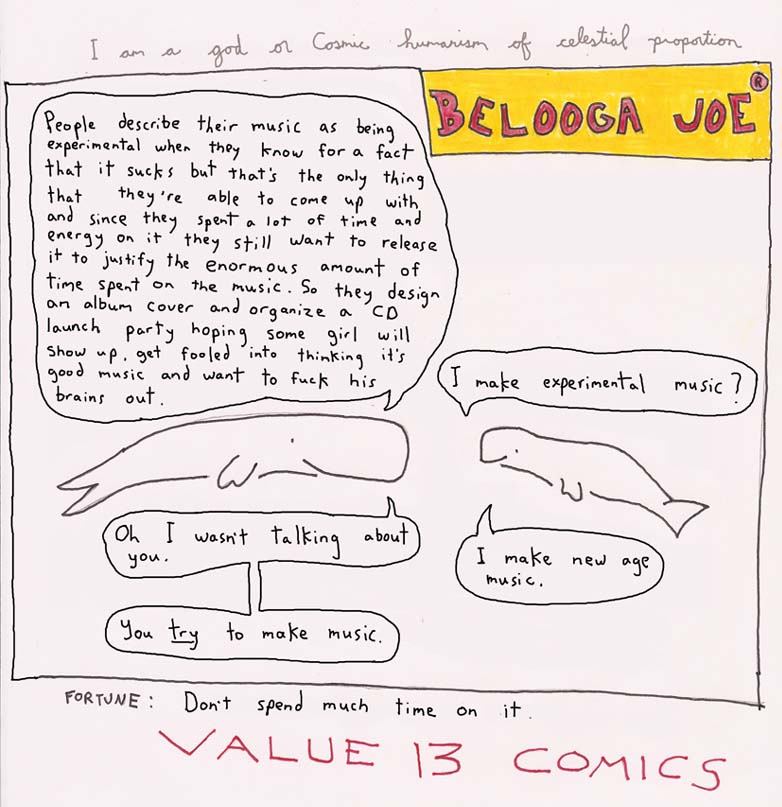 I am a god or Cosmic humarism of celestial proportion
BELOOGA JOE ®
People describe their music as being
experimental when they know for a fact
that it sucks but that's the only thing
that they're able to come up with
and since they spent a lot of time and
energy on it they still want to release
it to justify the enormous amount of
time spent on the music. So they design
an album cover and organize a CD
launch party hoping some girl will
show up, get fooled into thinking it's
good music and want to fuck his
brains out.
I make experimental music?
Oh I wasn't talking about
you.
I make new age
music.
You try to make music.
FORTUNE: Don't spend much time on it.
VALUE 13 COMICS